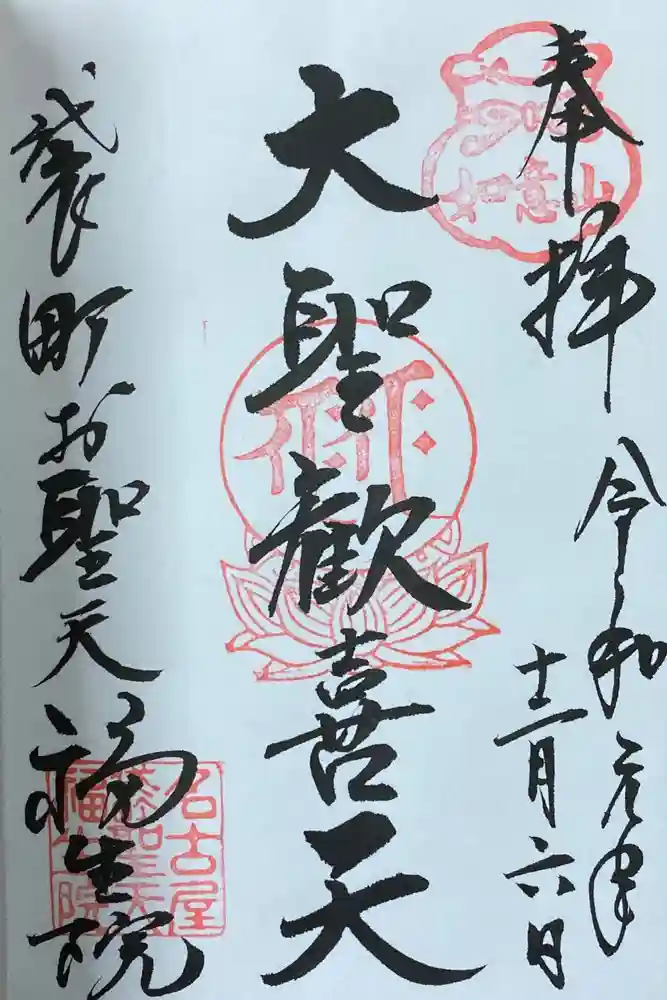 奉拝
令和元年
十二月六日
大聖歓喜天
袋町お聖天
福生院
如意山
名古屋
お聖天
福生院